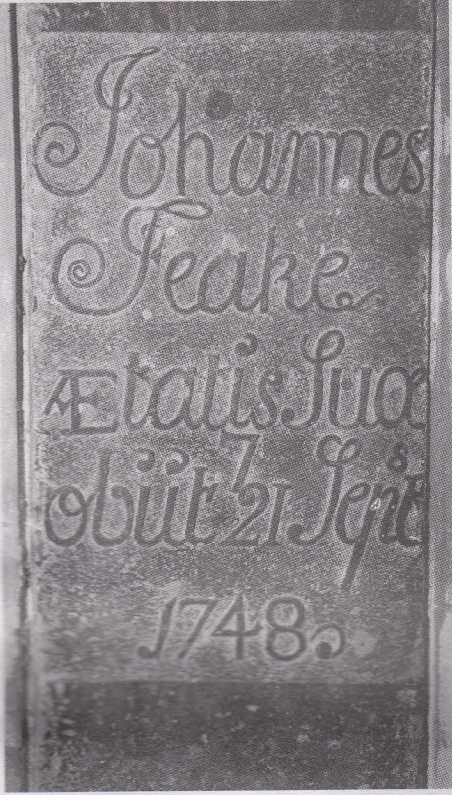 Johannes
Feake
Ætatis Suæ
7
obiit 21 Septs
1748